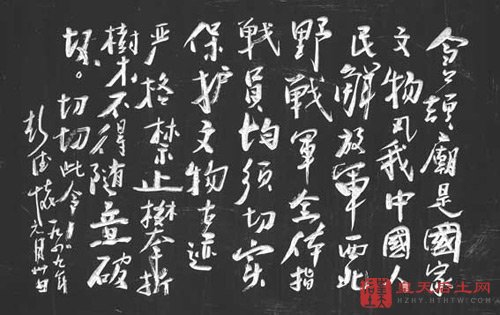 仓頡廟是國家
文物凡我中國人
民解放軍西北
野戰軍全体指
戰員均須切实
保护文物古迹
严格禁止攀折
樹木不得随意破
坏。切切此令！
彭德懷
一九四九年
月卅日
皇天后土网
HZHY.HTHTW.COM